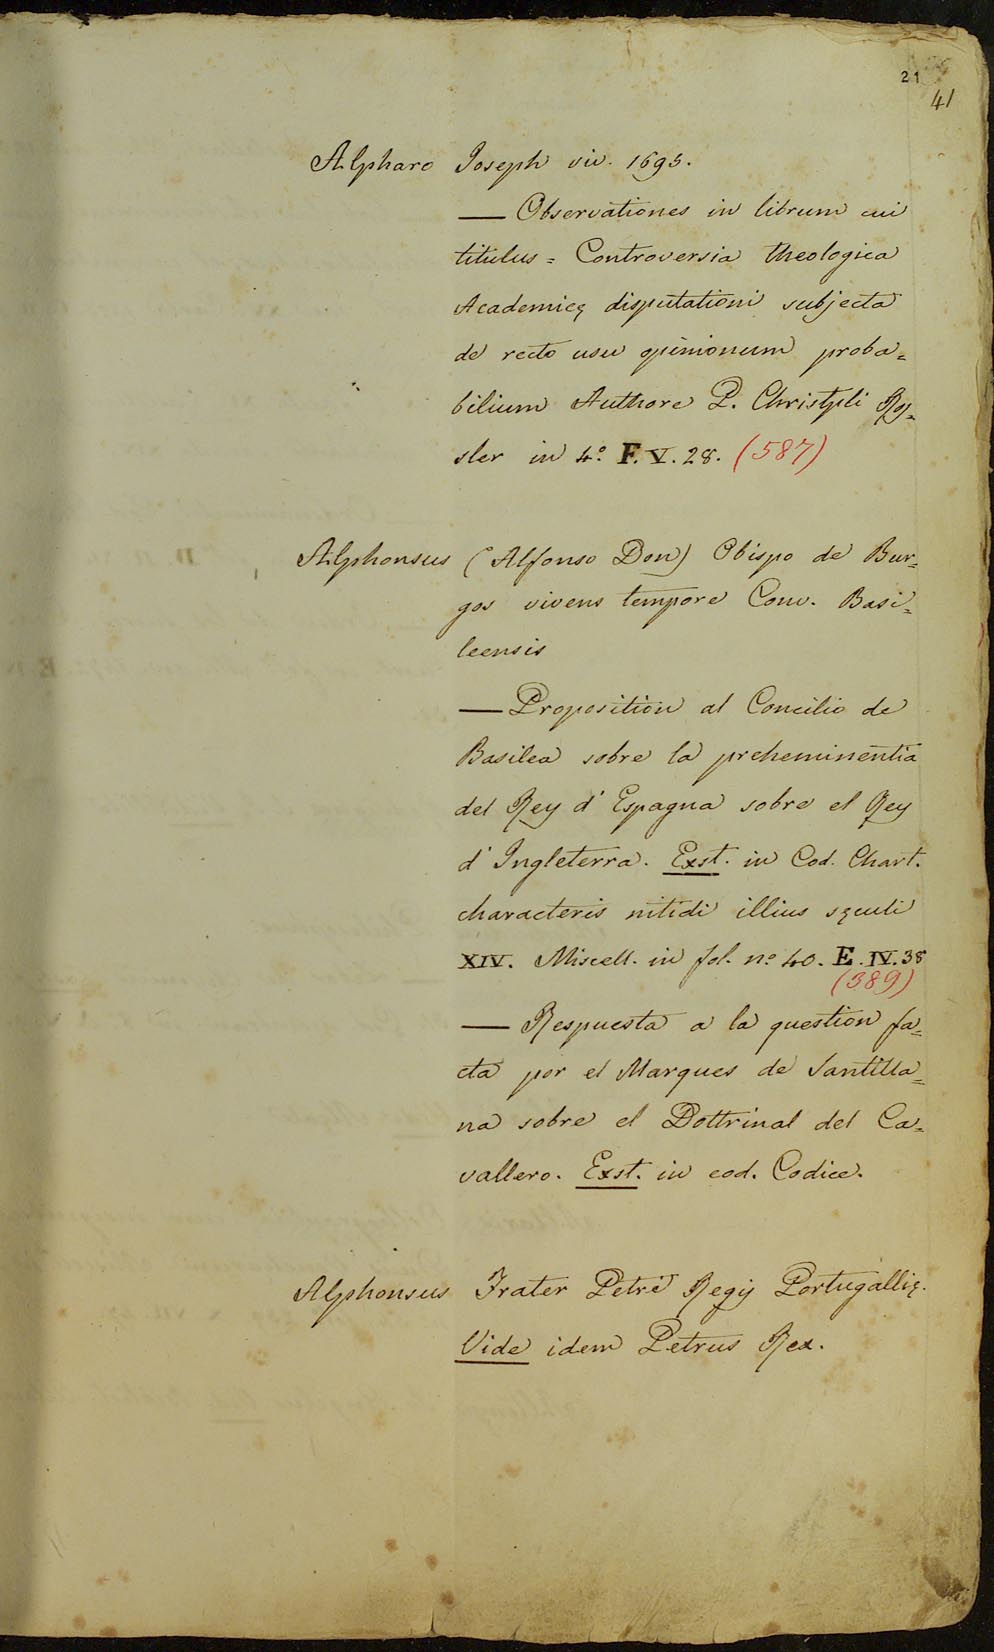 21
41
Alpharo Joseph viv. 1695.
— Observationes in librum cui
titulus = Controversia theologica
Academicę disputationi subjecta
de recto usu opinionum proba=
bilium Authore P. Christpli Ras=
sler in 4.º F. V. 28. (587)
Alphonsus (Alfonso Don) Obispo de Bur=
gos vivens tempore Conv. Basi=
leensis
— Proposition al Concilio de
Basilea sobre la preheminentia
del Rey d' Espagna sobre el Rey
d' Ingleterra. Exst. in Cod. Chart.
characteris nitidi illius sęculi
XIV. Miscell. in fol. nº 40. E. IV. 38
(389)
— Respuesta a la question fa=
cta por el Marques de Santilla=
na sobre el Dottrinal del Ca=
vallero. Exst. in eod. Codice.
Alphonsus Frater Petri Regij Portugallię.
Vide idem Petrus Rex.